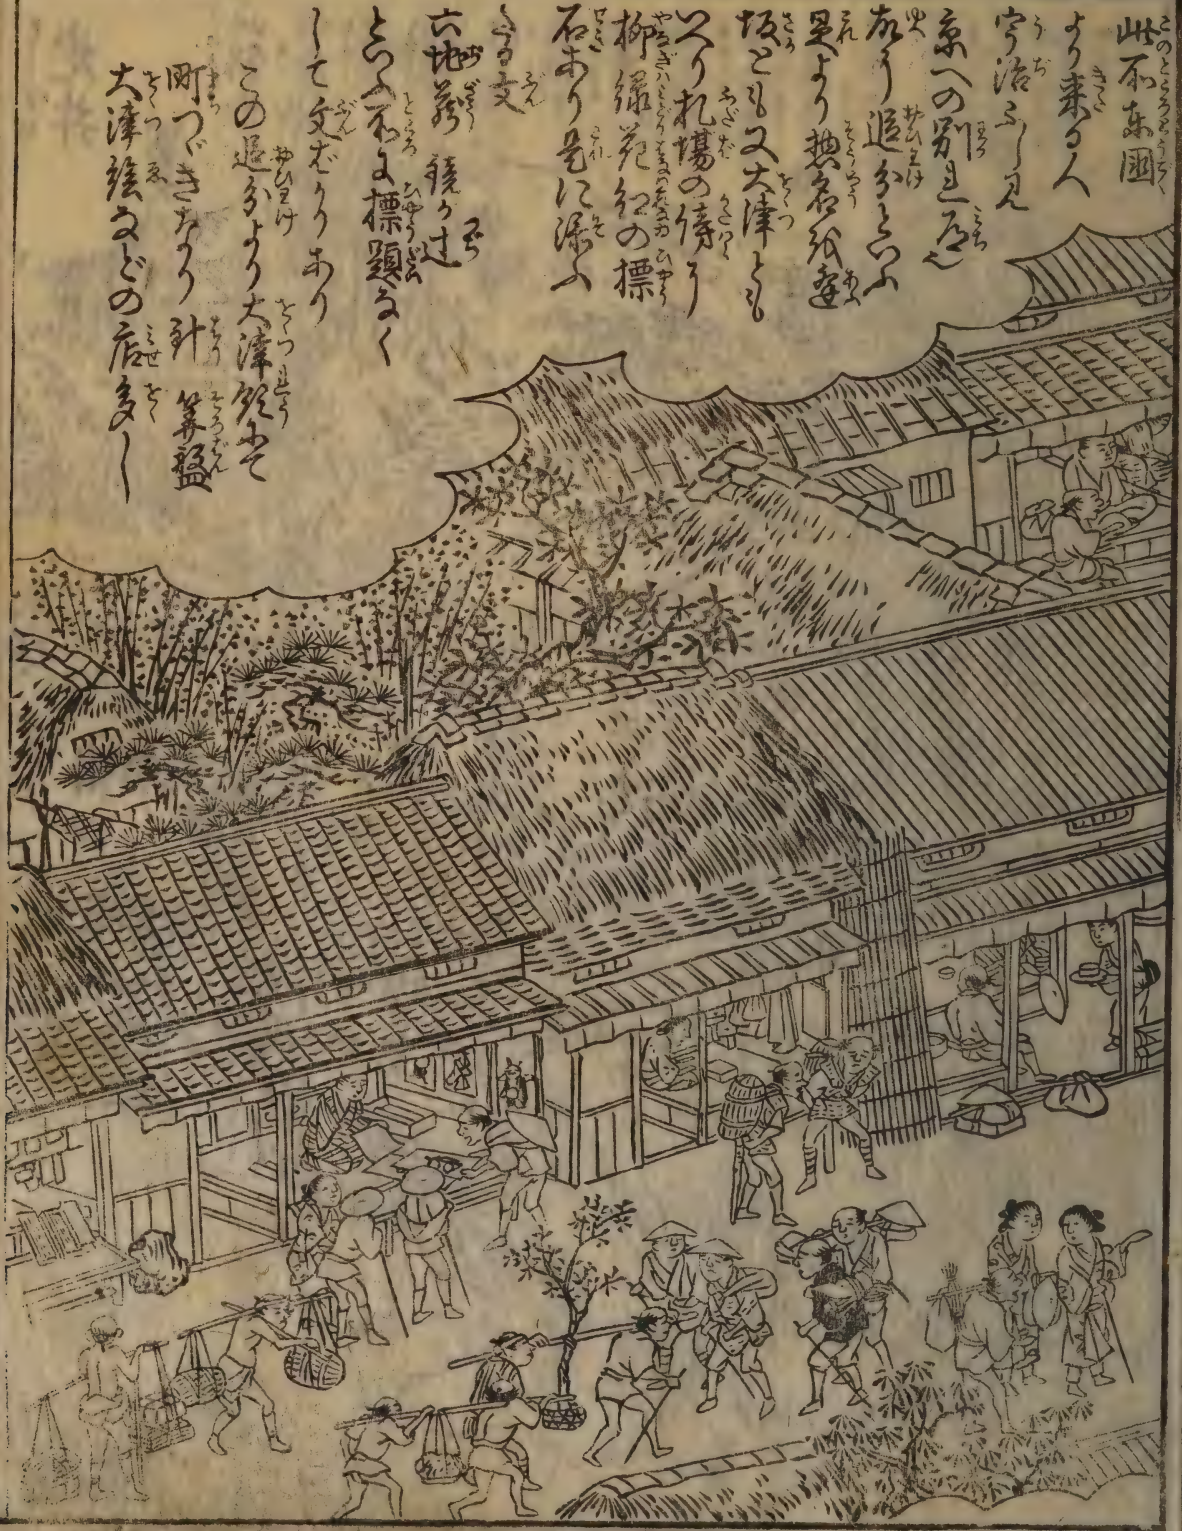 此所東國
より来る人
宇治ふしみ
京への別れ道也
故に追分といふ
是より惣名を逢
坂とも又大津とも
いへり札場の傍に
柳ハ緑花ハ紅の標
石あり是に添ふ
たる文
六地蔵 鏡が辻
といふ所に標題なく
して文ばかりあり
この追分より大津領にて
町つゞきなり針 算盤
大津絵などの店多し